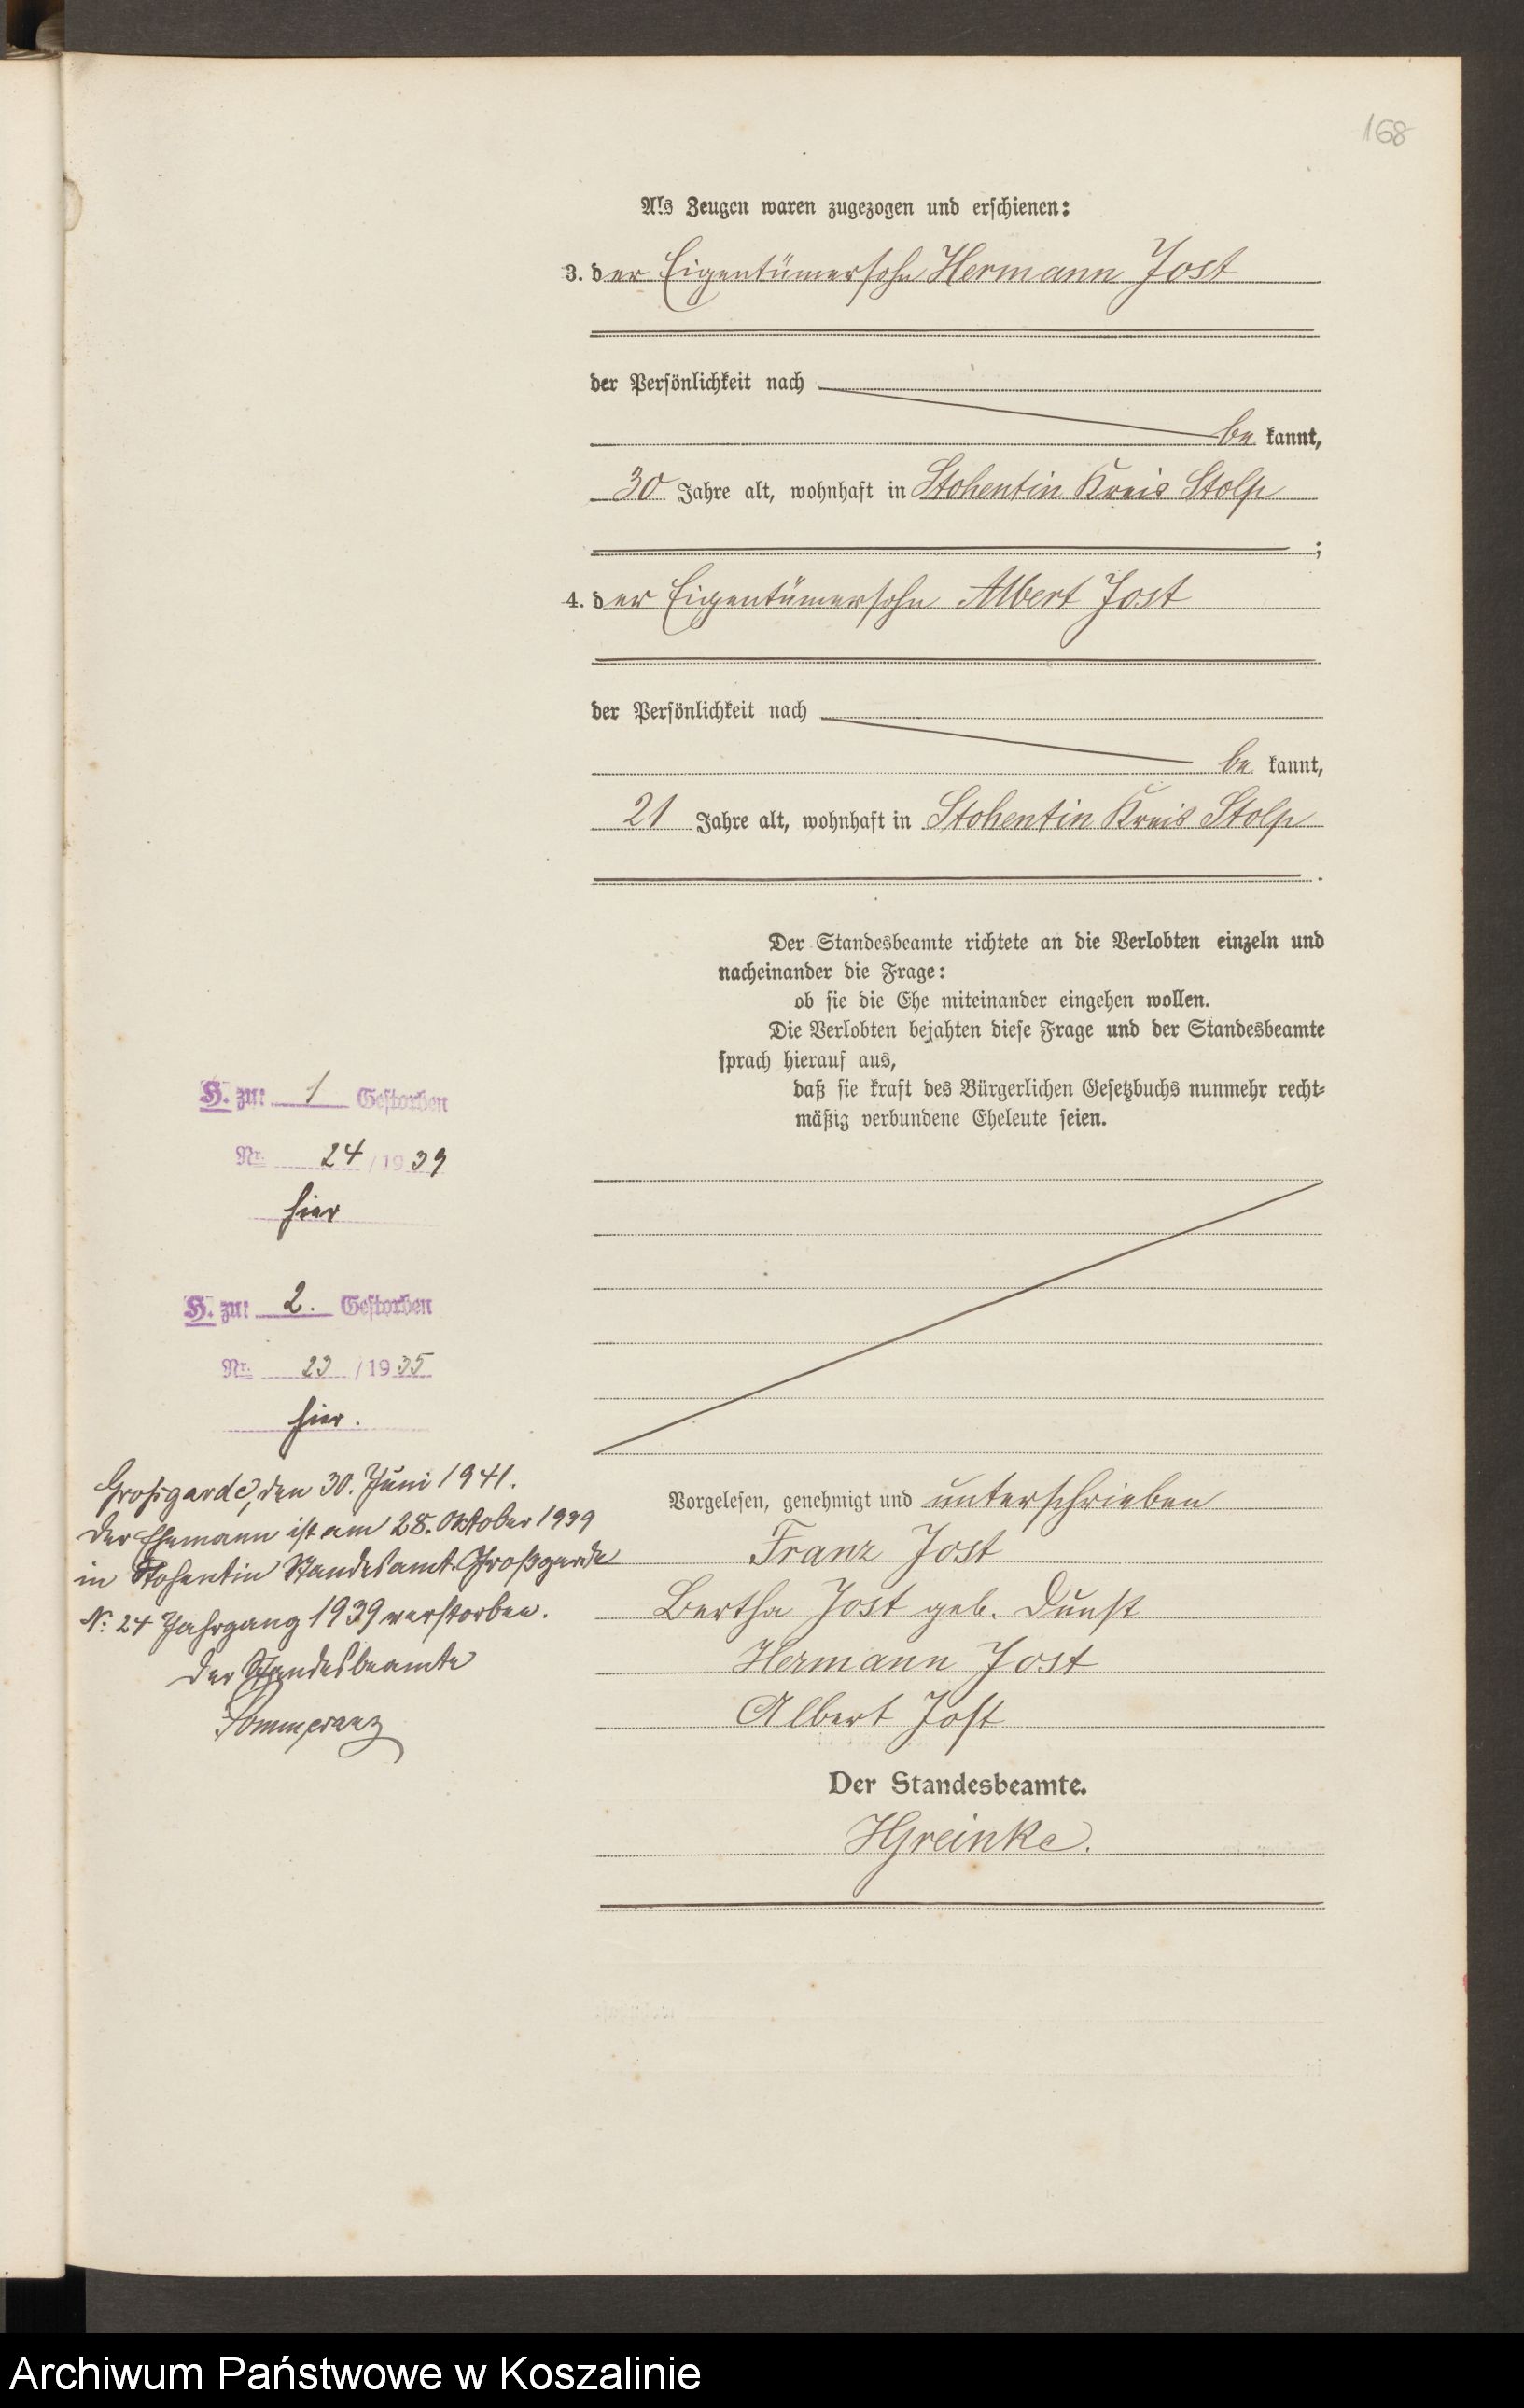 168
Als Zeugen waren zugezogen und erschienen:
3. der Eigentümersohn Hermann Jost
der Persönlichkeit nach
be kannt,
30 Jahre alt, wohnhaft in Stohentin Kreis Stolp
;
4. der Eigentümersohn Albert Jost
der Persönlichkeit nach
be kannt,
21 Jahre alt, wohnhaft in Stohentin Kreis Stolp
.
Der Standesbeamte richtete an die Verlobten einzeln und
nacheinander die Frage:
ob sie die Ehe miteinander eingehen wollen.
Die Verlobten bejahten diese Frage und der Standesbeamte
sprach hierauf aus,
daß sie kraft des Bürgerlichen Gesetzbuchs nunmehr recht-
mäßig verbundene Eheleute seien.
Vorgelesen, genehmigt und unterschrieben
Franz Jost
Bertha Jost geb. Dunst
Hermann Jost
Albert Jost
Der Standesbeamte.
HGreinke.
H. zu: 1 Gestorben
Nr. 24/1939
hier
H. zu: 2. Gestorben
Nr. 23/1935
hier.
Großgarde, den 30. Juni 1941.
Der Ehemann ist am 28. Oktober 1939
in Stohentin Standesamt Großgarde
N: 24 Jahrgang 1939 verstorben.
Der Standesbeamte
Archiwum Państwowe w Koszalinie